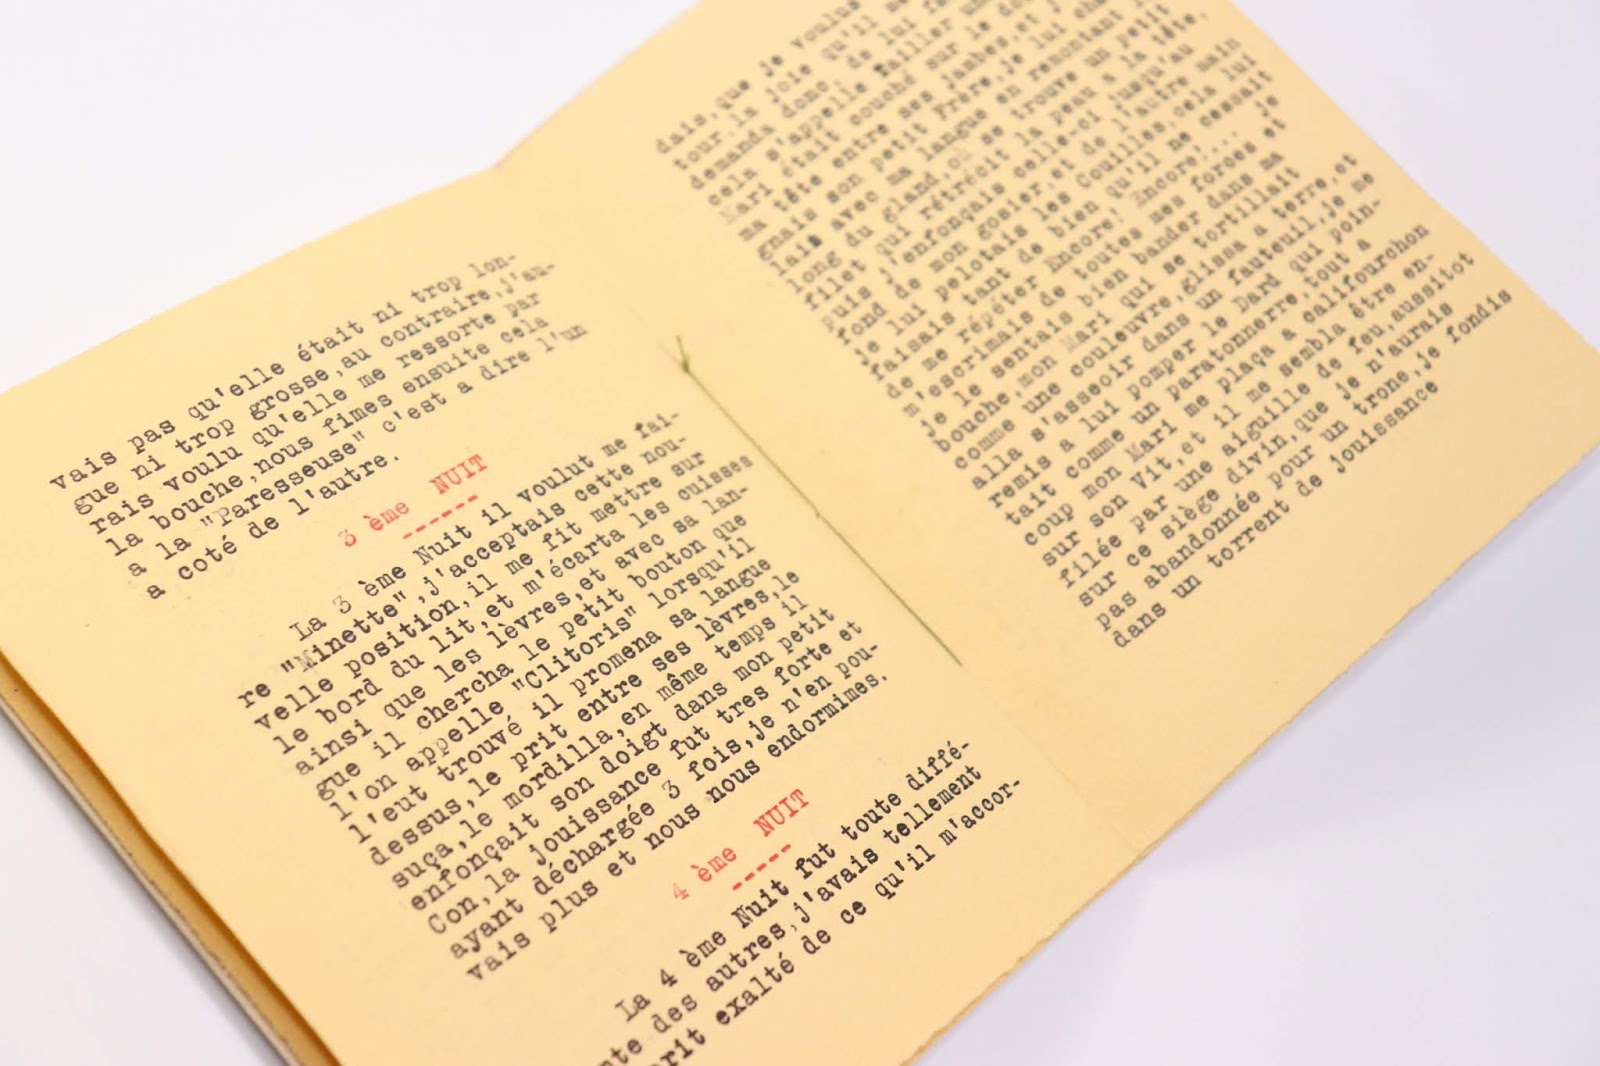 vais pas qu'elle était ni trop lon-
gue ni trop grosse,au contraire,j'au-
rais voulu qu'elle me ressorte par
la bouche,nous fimes ensuite cela
a la "Paresseuse" c'est a dire l'un
a coté de l'autre.
3 ème NUIT
La 3 ème Nuit il voulut me fai-
re "Minette",j'acceptais cette nou-
velle position,il me fit mettre sur
le bord du lit,et m'écarta les cuisses
ainsi que les lèvres,et avec sa lan-
gue il chercha le petit bouton que
l'on appelle "Clitoris" lorsqu'il
l'eut trouvé il promena sa langue
dessus,le prit entre ses lèvres,le
suça,le mordilla,en même temps il
enfonçait son doigt dans mon petit
Con,la jouissance fut tres forte et
ayant déchargée 3 fois,je n'en pou-
vais plus et nous nous endormimes.
4 ème NUIT
La 4 ème Nuit fut toute diffé-
nte des autres,j'avais tellement
rit exalté de ce qu'il m'accor-
dais,que je voulus
tour.la joie qu'il
demanda donc, de lui
cela s'appelle tailler
Mari était couché sur le
ma tête entre ses jambes,et
gnais son petit Frère,je lui
lais avec ma langue en remontant
long du gland,où se trouve un petit
filet qui rétrécit la peau a la tête,
puis j'enfonçais celle-ci jusqu'au
fond de mon gosier,et de l'autre main
je lui pelotais les Couilles,cela lui
faisais tant de bien qu'il ne cessait
de me répéter Encore! Encore!... je
m'escrimais de toutes mes forces et
je le sentais bien bander dans ma
bouche,mon Mari qui se tortillait
comme une couleuvre,glissa a terre,et
alla s'asseoir dans un fauteuil,je me
remis a lui pomper le Dard qui poin-
tait comme un paratonnerre,tout a
coup mon Mari me plaça a califourchon
sur son Vit,et il me sembla être en-
filée par une aiguille de feu,aussitot
sur ce siège divin,que je n'aurais
pas abandonnée pour un trone,je fondis
dans un torrent de jouissance